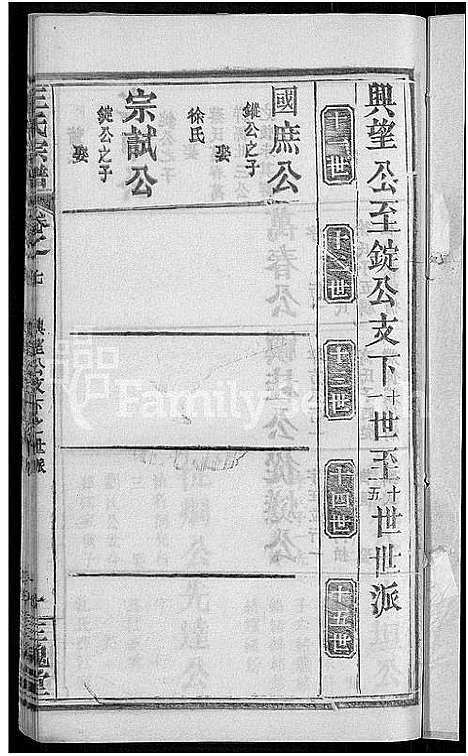 興望公至錠公支下十一世至十五世世派
十一世
十二世
十三世
十四世
十五世
國庶公
鏦公之子
娶
徐氏
宗試公
錠公之子
娶
王氏宗譜
卷之七
興望公支下之世派
三槐堂
FamilySearch